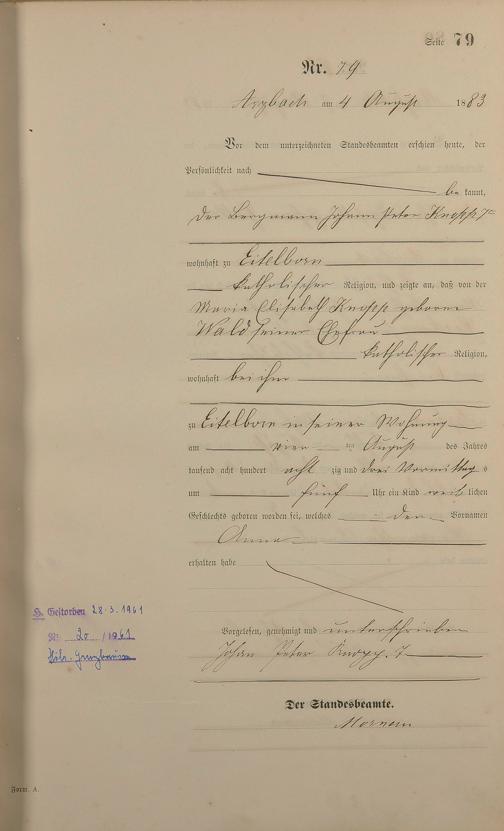 Seite 79
Nr. 79.
Arzbach am 4 August 1883
Vor dem unterzeichneten Standesbeamten erschien heute, der
Persönlichkeit nach
be kannt,
der Bergmann Johann Peter Knopp 7te
wohnhaft zu Eitelborn
katholischer Religion, und zeigte an, daß von der
Maria Elisabeth Knopp geborne
Wald seiner Ehefrau
katholischer Religion,
wohnhaft bei ihm
zu Eitelborn in seiner Wohnung
am vier ten August des Jahres
tausend acht hundert acht zig und drei Vormittag s
um fünf Uhr ein Kind weib lichen
Geschlechts geboren worden sei, welches den Vornamen
Anna
erhalten habe
H. Gestorben 28.3.1961
Nr. 20 /1961
Vorgelesen, genehmigt und unterschrieben
Johan Peter Knopp. 7
Der Standesbeamte.
Form. A.